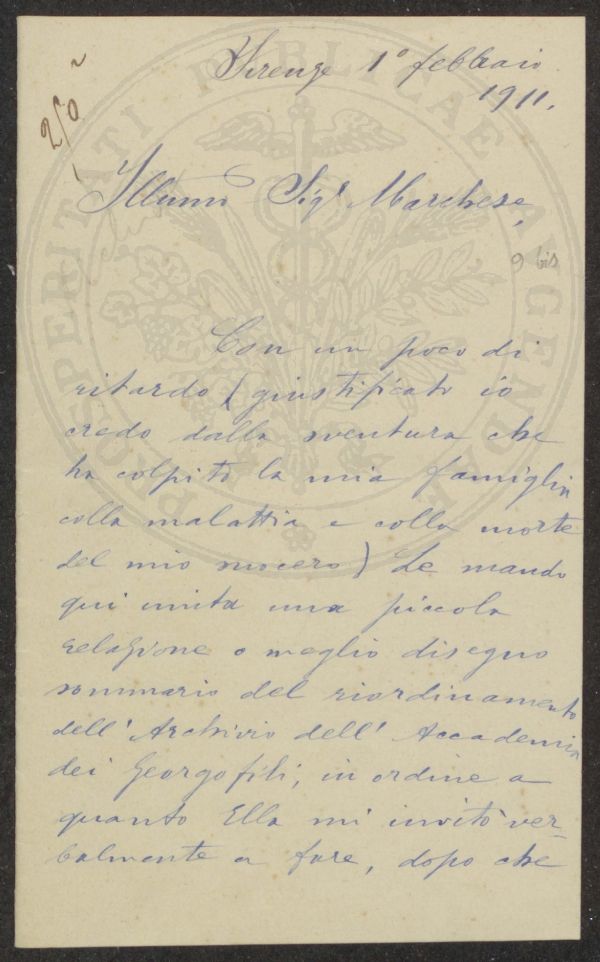 Firenze 1º febbraio
1911.
250
Illmo Sigr Marchese,
9 bis
Con un poco di
ritardo (giustificato io
credo dalla sventura che
ha colpito la mia famiglia
colla malattia e colla morte
del mio suocero) Le mando
qui unita una piccola
relazione o meglio disegno
sommario del riordinamento
dell' Archivio dell' Accademia
dei Georgofili, in ordine a
quanto Ella mi invitò ver-
balmente a fare, dopo che
PROSPERITATI PUBLICAE AUGENDAE